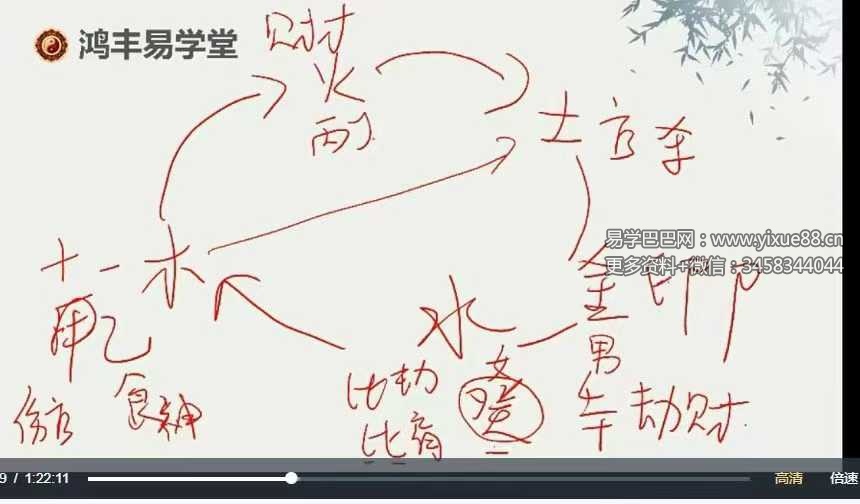 鸿丰易学堂
财才
火
丙丁
土 官 杀
易学巴巴网：www.yixue88.cn
更多资料+微信：3458344044
十 一 木
甲乙
伤官 食神
水
比劫
比肩
女
癸
金 印 P
男
劫财
1:22:11
高清
倍速